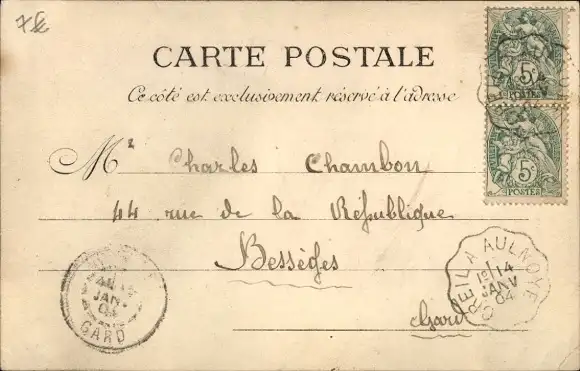 7€
CARTE POSTALE
Ce côté est exclusivement réservé à l'adresse
Mr Charles Chambon
44 rue de la République
Bessèges
Gard
5c
POSTES
5c
POSTES
CREIL A AULNOYE
1º 14
JANV
04
JANV
04
GARD